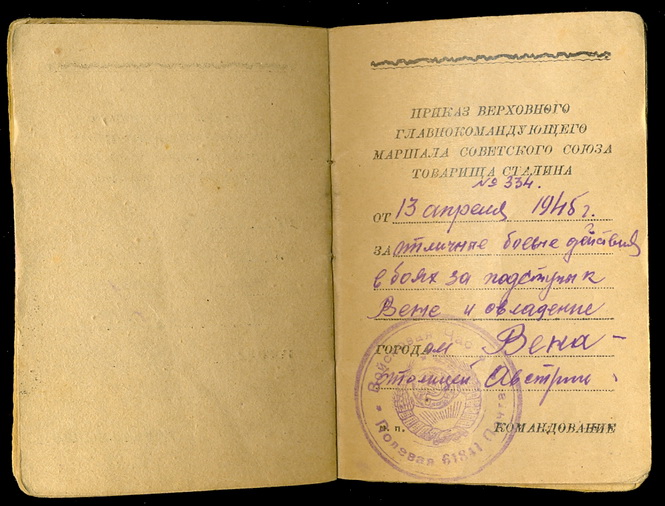 ПРИКАЗ ВЕРХОВНОГО
ГЛАВНОКОМАНДУЮЩЕГО
МАРШАЛА СОВЕТСКОГО СОЮЗА
ТОВАРИЩА СТАЛИНА
№ 334.
ОТ 13 апреля 1945 г.
ЗА отличные боевые действия
в боях за подступы к
Вене и овладение
ГОРОДОМ Вена -
столицей Австрии.
М. П. КОМАНДОВАНИЕ
Войсковая Часть
* Полевая 61841 Почта *